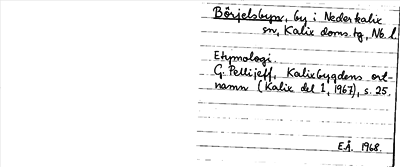 Börjelsbyn, by i Nederkalix
sn, Kalix doms.tg, Nb. l.
Etymologi.
G. Pellijeff, Kalixbygdens ort-
namn (Kalix del 1, 1967), s. 25.
E.Å. 1968.